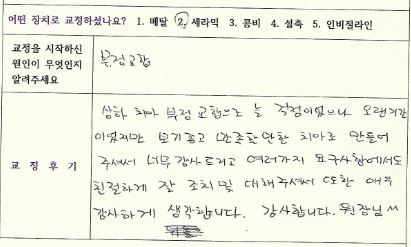 어떤 장치로 교정하셨나요? 1. 메탈 2. 세라믹 3. 콤비 4. 설측 5. 인비절라인
교정을 시작하신
원인이 무엇인지
알려주세요
부정교합
교 정 후 기
상하 치아 부정 교합으로 늘 걱정이었으나 오랜기간
이었지만 보기좋고 만족할만한 치아로 만들어
주셔서 너무 감사드리고 여러가지 요구사항에서도
친절하게 잘 조치 및 대해주셔서 또한 매우
감사하게 생각합니다. 감사합니다. 원장님 ^^